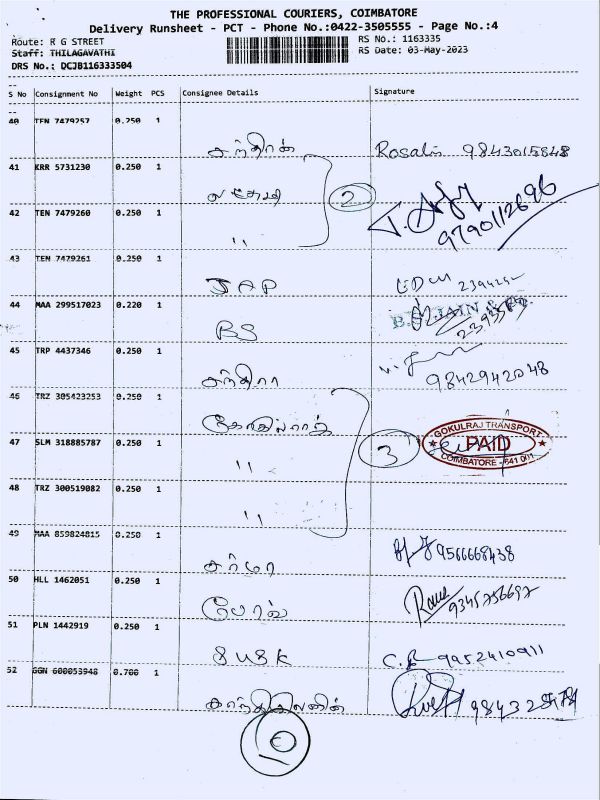 THE PROFESSIONAL COURIERS, COIMBATORE
Delivery Runsheet - PCT - Phone No.:0422-3505555 - Page No.:4
Route: R G STREET
RS No.: 1163335
Staff: THILAGAVATHI
RS Date: 03-May-2023
DRS No.: DCJB116333504
S No Consignment No Weight PCS Consignee Details Signature
40 TEN 7479257 0.250 1
Rosalin 9843015848
41 KRR 5731230 0.250 1
2
42 TEN 7479260 0.250 1
"
9790112696
43 TEN 7479261 0.250 1
JAP
44 MAA 299517023 0.220 1
BS
45 TRP 4437346 0.250 1
சந்திரா 9842942048
46 TRZ 305423253 0.250 1
கோகுல்ராஜ்
47 SLM 318885787 0.250 1
"
3
GOKULRAJ TRANSPORT
PAID
COIMBATORE - 641 001
48 TRZ 300519082 0.250 1
"
49 MAA 859824815 0.250 1
சர்மா 9566668438
50 HLL 1462051 0.250 1
9345756697
51 PLN 1442919 0.250 1
SUSK 9952410911
52 GGN 600053948 0.700 1